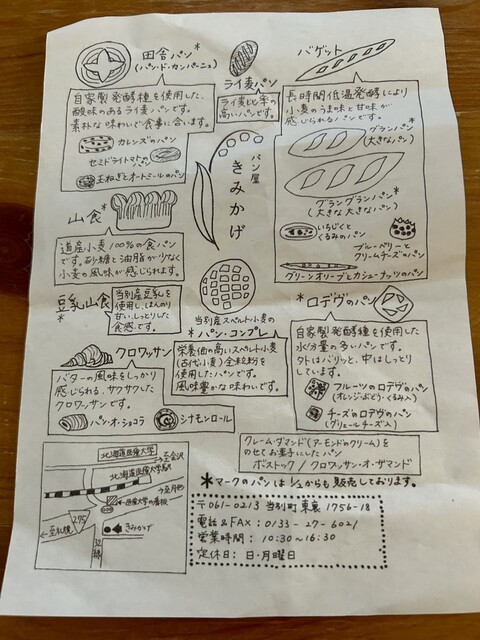 田舎パン*
(パン・ド・カンパーニュ)
自家製発酵種を使用した、
酸味のあるライ麦パンです。
素朴な味わいで食事に合います。
カレンズのパン
セミドライトマトのパン
玉ねぎとオートミールのパン
ライ麦パン
ライ麦比率の
高いパンです。
バゲット
長時間低温発酵により
小麦のうま味と甘味が
感じられるパンです。
グランパン*
(大きなパン)
グラングランパン*
(大きな大きなパン)
いちじくと
くるみのパン
ブルーベリーと
クリームチーズのパン
グリーンオリーブとカシューナッツのパン
パン屋
きみかげ
山食*
道産小麦100%の食パン
です。砂糖と油脂が少なく
小麦の風味が感じられます。
豆乳山食*
当別産豆乳を
使用し、ほんのり
甘い、しっとりした
食感です。
当別産スペルト小麦の
*パン・コンプレ
栄養価の高いスペルト小麦
(古代小麦)全粒粉を
使用したパンです。
風味豊かな味わいです。
*ロデヴのパン
自家製発酵種を使用した
水分量の多いパンです。
外はパリッと、中はしっとり
しています。
フルーツのロデヴのパン
(オレンジ・ぶどう・くるみ入)
チーズのロデヴのパン
(グリュエールチーズ入)
クロワッサン
バターの風味をしっかり
感じられる、サクサクした
クロワッサンです。
パン・オ・ショコラ
シナモンロール
クレーム・ダマンド(アーモンドのクリーム)を
のせてお菓子にしたパン
ボストック / クロワッサン・オ・ザマンド
*マークのパンは1/2からも販売しております。
北海道医療大学
→至金沢
北海道医療大学駅
→至月形
←医療大学の看板
←至札幌
275
きみかげ
〒061-0213 当別町東裏1756-18
電話&FAX:0133-27-6021
営業時間:10:30~16:30
定休日:日・月曜日